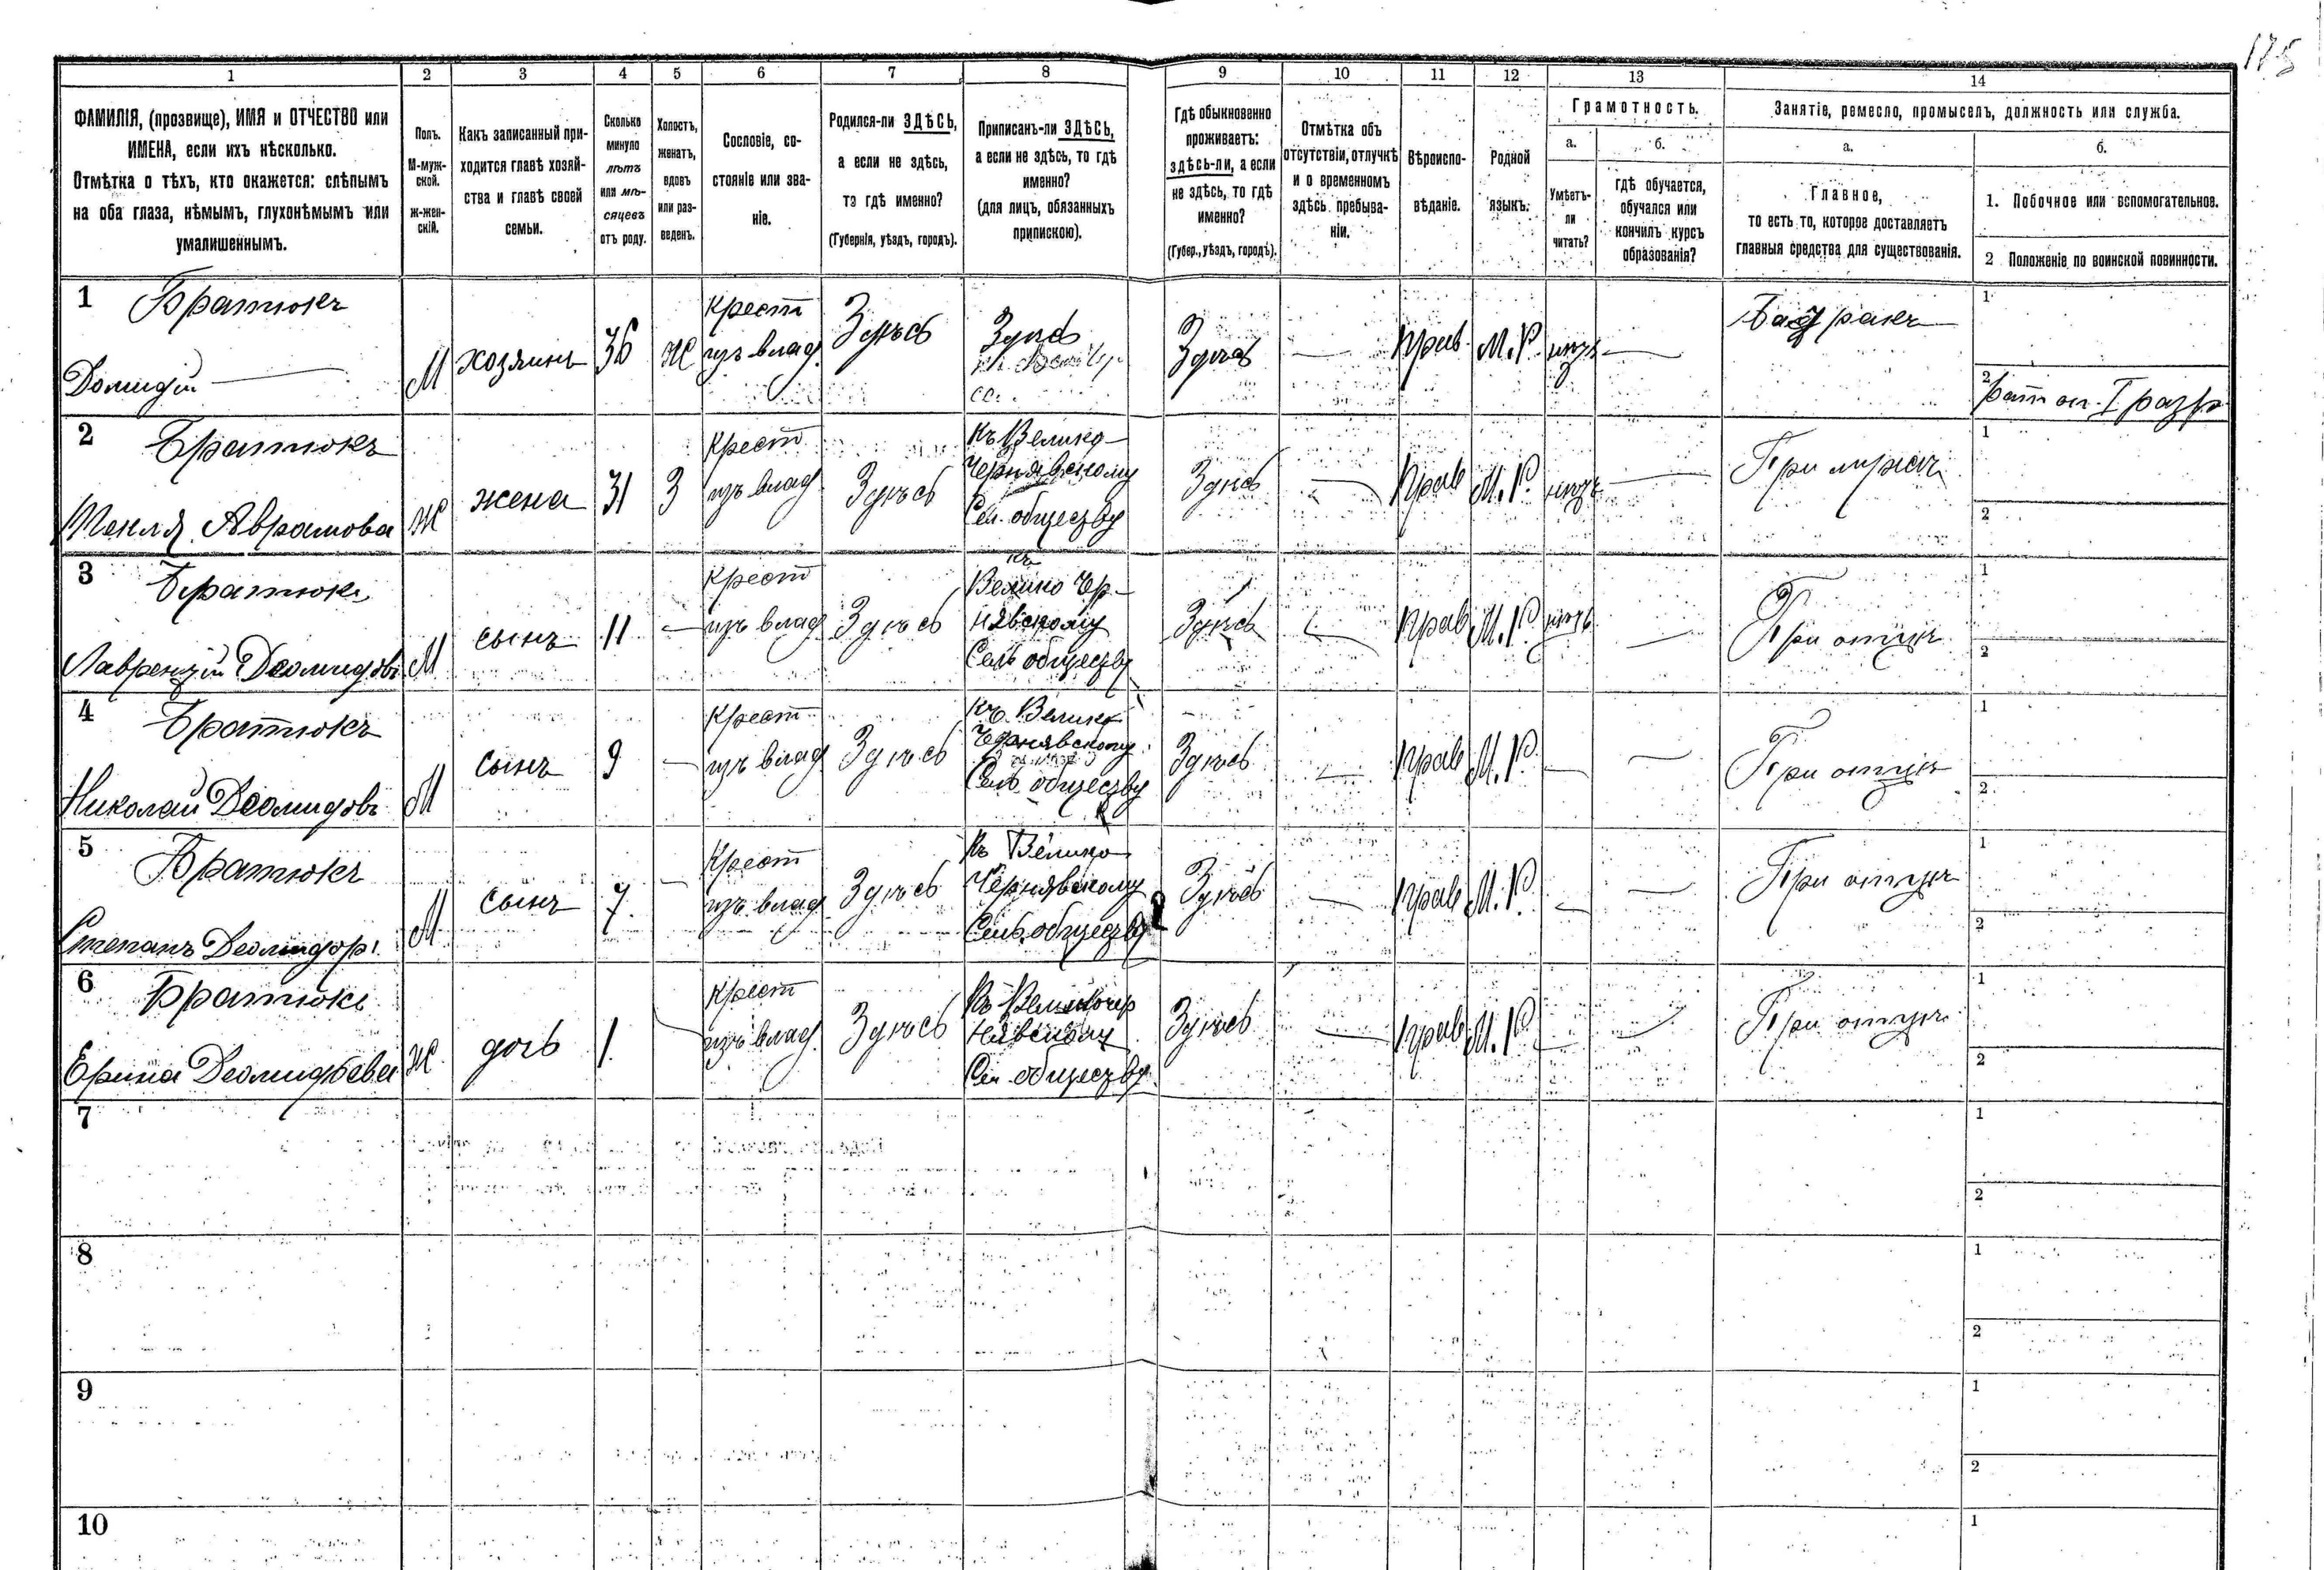 175
1 2 3 4 5 6 7 8 9 10 11 12 13 14
ФАМИЛІЯ, (прозвище), ИМЯ и ОТЧЕСТВО или
ИМЕНА, если ихъ нѣсколько.
Отмѣтка о тѣхъ, кто окажется: слѣпымъ
на оба глаза, нѣмымъ, глухонѣмымъ или
умалишеннымъ.
Полъ.
М-муж-
ской.
Ж-жен-
скій.
Какъ записанный при-
ходится главѣ хозяй-
ства и главѣ своей
семьи.
Сколько
минуло
лѣтъ
или мѣ-
сяцевъ
отъ роду.
Холостъ,
женатъ,
вдовъ
или раз-
веденъ.
Сословіе, со-
стояніе или зва-
ніе.
Родился-ли ЗДѢСЬ,
а если не здѣсь,
то гдѣ именно?
(Губернія, уѣздъ, городъ).
Приписанъ-ли ЗДѢСЬ,
а если не здѣсь, то гдѣ
именно?
(для лицъ, обязанныхъ
припискою).
Гдѣ обыкновенно
проживаетъ:
здѣсь-ли, а если
не здѣсь, то гдѣ
именно?
(Губер., уѣздъ, городъ).
Отмѣтка объ
отсутствіи, отлучкѣ
и о временномъ
здѣсь пребыва-
ніи.
Вѣроиспо-
вѣданіе.
Родной
языкъ.
Грамотность.
а.
Умѣетъ-
ли
читать?
б.
Гдѣ обучается,
обучался или
кончилъ курсъ
образованія?
Занятіе, ремесло, промыселъ, должность или служба.
а.
Главное,
то есть то, которое доставляетъ
главныя средства для существованія.
б.
1. Побочное или вспомогательное.
2 Положеніе по воинской повинности.
1 Братюкъ
Домидій
М
хозяинъ
36
Ж
Крест
изъ влад.
Здѣсь
Здѣсь
Здѣсь
Прав.
М.Р.
1
2
2 Братюкъ
Текля Аврамова
Ж
жена
31
З
Крест
изъ влад
Здѣсь
Къ Велико-
Чернявскому
Сел. обществу
Здѣсь
Прав
М.Р.
1
2
3 Братюкъ
Лаврентій Деомидовъ
М
сынъ
11
Крест
изъ влад
Здѣсь
Къ
Велико Чер-
нявскому
Сель обществу
Здѣсь
Прав
М.Р.
При отцѣ
1
2
4 Братюкъ
Николай Деомидовъ
М
сынъ
9
Крест
изъ влад
Здѣсь
Къ Велико
Чернявскому
Сель обществу
Здѣсь
Прав
М.Р.
При отцѣ
1
2
5 Братюкъ
Степанъ Деомидовъ
М
сынъ
7.
Крест
изъ влад
Здѣсь
Къ Велико
Чернявскому
Сель. обществу
Здѣсь
Прав
М.Р.
При отцѣ
1
2
6 Братюкъ
Ерина
Ж
дочь
1.
Крест
изъ влад.
Здѣсь
Къ Великочер
нявскому
Сел. обществу
Здѣсь
Прав
М.Р.
При отцѣ
1
2
7
1
2
8
1
2
9
1
2
10
1